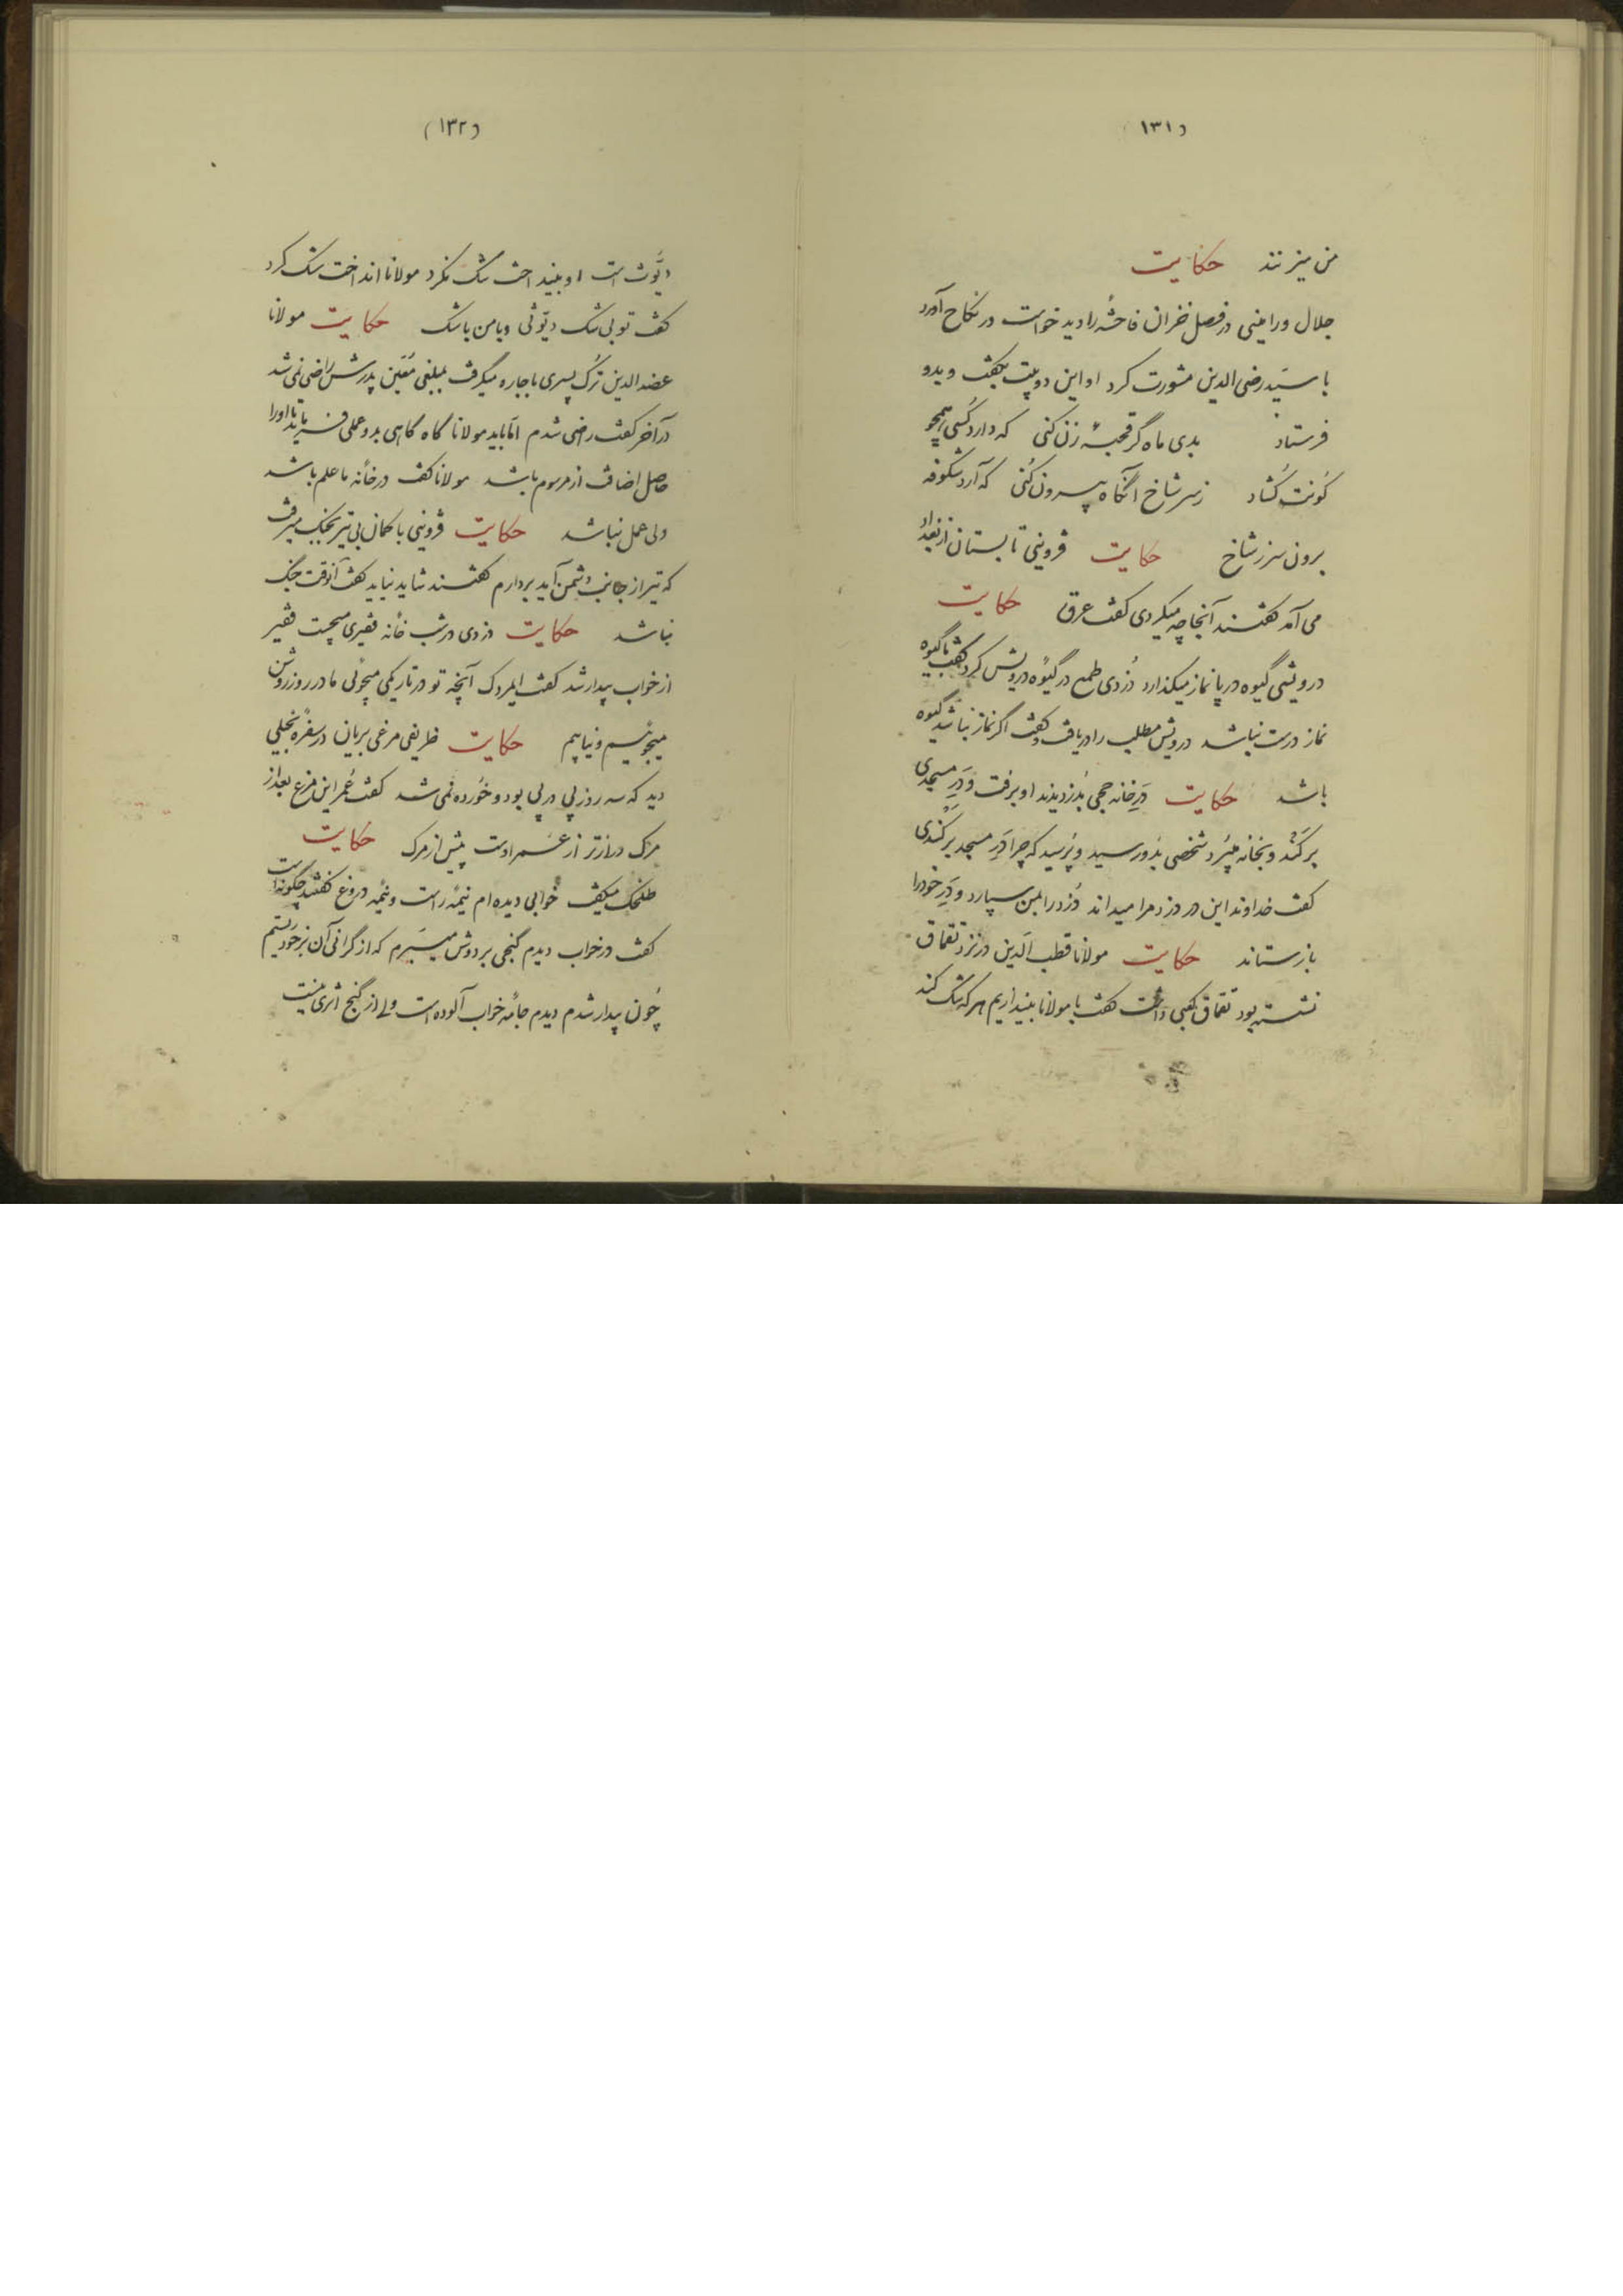 (۱۳۱)
من میزنند حکایت
جلال ورامینی در فصل خزان فاحشهٔ را دید خواست در نکاح آورد
با سیّد رضی الدین مشورت کرد او این دو بیت بگفت و بدو
فرستاد بدی ماه گر قحبهٔ زن کنی که دارد کُسی همچو
کونت گشاد ز سر شاخ آنگاه بیرون کُنی که آرد شکوفه
برون سر ز شاخ حکایت قزوینی تابستان از بغداد
می آمد گفتند آنجا چه میکردی گفت عرق حکایت
درویشی گیوه در پا نماز میگذارد دُزدی طمع در گیوهٔ درویش کرد گفت با گیوه
نماز درست نباشد درویش مطلب را دریافت و گفت اگر نماز نباشد گیوه
باشد حکایت دَرِ خانه جحی بُدزدیدند او برفت و دَرِ مسجدی
برکَند و بخانه میبُرد شخصی بدو رسید و پُرسید که چرا دَرِ مسجد برکَندی
گفت خداوند این در دزد مرا میداند دُزد را بمن سپارد و دَرِ خود را
بازستاند حکایت مولانا قطب الّدین در نزد تقماق
نشسته بود تقماق کعبی داشت گفت با مولانا بیندازیم هر که شک کند
(۱۳۲)
دیُّوث است او بینداخت شک نکرد مولانا انداخت شک کرد
گفت تو بی شک دیّوثی و با من با شک حکایت مولانا
عضد الدین تُرک پسری باجاره میگرفت بمبلغی مُعَین پدرش راضی نمی شد
در آخر گفت راضی شدم امّا باید مولانا گاه گاهی بدو عملی فرماید تا او را
حاصل اضافت از مرسوم باشد مولانا گفت در خانه ما علم باشد
ولی عمل نباشد حکایت قزوینی با کمان بی تیر بجنگ میرفت
که تیر از جانب دشمن آید بردارم گفتند شاید نیاید گفت آنوقت جنگ
نباشد حکایت دزدی در شب خانهٔ فقیری میجست فقیر
از خواب بیدار شد گفت ایمردک آنچه تو در تاریکی میجوئی ما در روز روشن
میجوئیم و نیابیم حکایت ظریفی مرغی بریان در سفرهٔ بخیلی
دید که سه روز پی در پی بود و خورده نمی شد گفت عُمر این مرغ بعد از
مرک درازتر از عمر اوست پیش از مرک حکایت
طلخک میگفت خوابی دیده ام نیمهٔ راست و نیمه دروغ گفتند چگونه است
گفت در خواب دیدم گنجی بر دوش میبَرم که از گرانی آن بر خود ریستم
چون بیدار شدم دیدم جامهٔ خواب آلوده است ولی از گنج اثری نیست